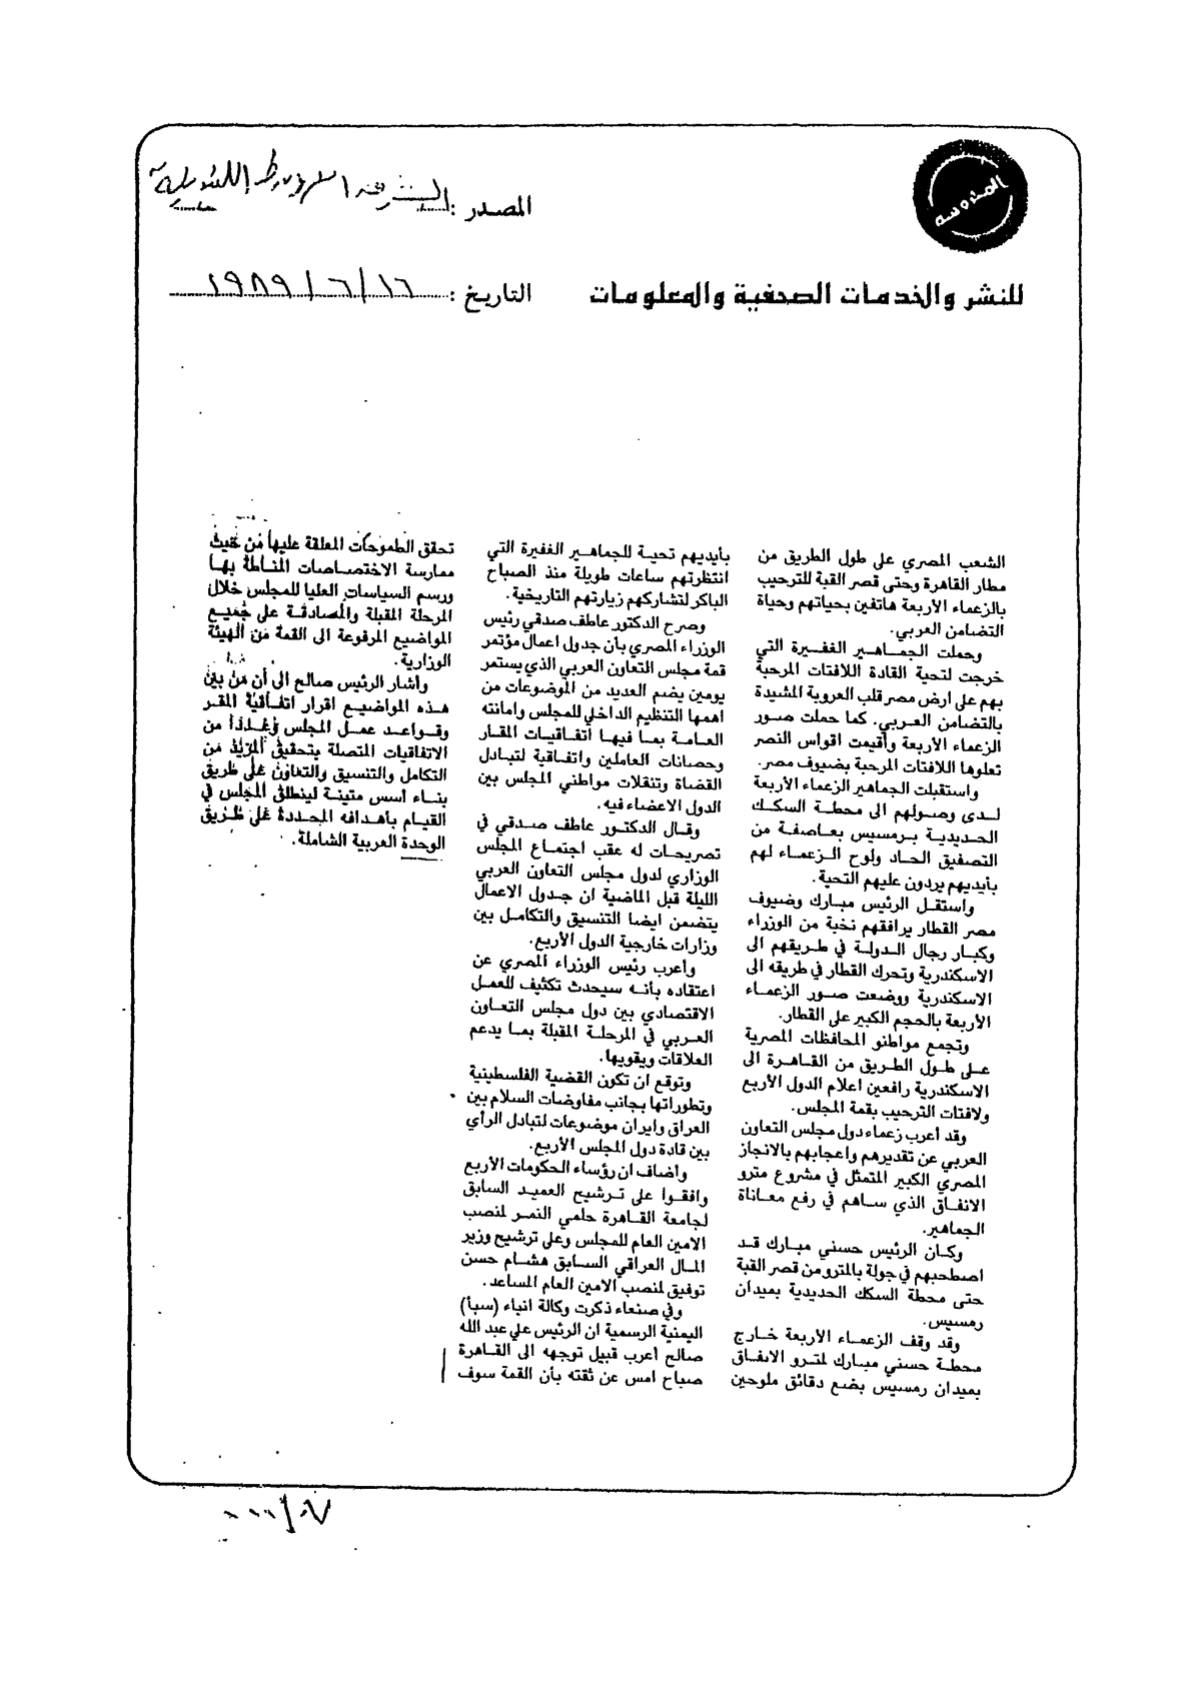 المحروسة
المصدر : الشرق الاوسط اللندنية
للنشر والخدمات الصحفية والمعلومات
التاريخ : ١٦/٦/١٩٨٩
الشعب المصري على طول الطريق من
مطار القاهرة وحتى قصر القبة للترحيب
بالزعماء الأربعة هاتفين بحياتهم وحياة
التضامن العربي.
وحملت الجماهير الغفيرة التي
خرجت لتحية القادة اللافتات المرحبة
بهم على ارض مصر قلب العروبة المشيدة
بالتضامن العربي. كما حملت صور
الزعماء الأربعة وأقيمت اقواس النصر
تعلوها اللافتات المرحبة بضيوف مصر.
واستقبلت الجماهير الزعماء الأربعة
لدى وصولهم الى محطة السكك
الحديدية برمسيس بعاصفة من
التصفيق الحاد ولوح الزعماء لهم
بأيديهم يردون عليهم التحية.
واستقل الرئيس مبارك وضيوف
مصر القطار يرافقهم نخبة من الوزراء
وكبار رجال الدولة في طريقهم الى
الاسكندرية وتحرك القطار في طريقه الى
الاسكندرية ووضعت صور الزعماء
الأربعة بالحجم الكبير على القطار.
وتجمع مواطنو المحافظات المصرية
على طول الطريق من القاهرة الى
الاسكندرية رافعين اعلام الدول الأربع
ولافتات الترحيب بقمة المجلس.
وقد أعرب زعماء دول مجلس التعاون
العربي عن تقديرهم واعجابهم بالانجاز
المصري الكبير المتمثل في مشروع مترو
الانفاق الذي ساهم في رفع معاناة
الجماهير.
وكان الرئيس حسني مبارك قد
اصطحبهم في جولة بالمترو من قصر القبة
حتى محطة السكك الحديدية بميدان
رمسيس.
وقد وقف الزعماء الأربعة خارج
محطة حسني مبارك لمترو الانفاق
بميدان رمسيس بضع دقائق ملوحين
بأيديهم تحية للجماهير الغفيرة التي
انتظرتهم ساعات طويلة منذ الصباح
الباكر لتشاركهم زيارتهم التاريخية.
وصرح الدكتور عاطف صدقي رئيس
الوزراء المصري بأن جدول اعمال مؤتمر
قمة مجلس التعاون العربي الذي يستمر
يومين يضم العديد من الموضوعات من
اهمها التنظيم الداخلي للمجلس وامانته
العامة بما فيها اتفاقيات المقار
وحصانات العاملين واتفاقية لتبادل
القضاة وتنقلات مواطني المجلس بين
الدول الاعضاء فيه.
وقال الدكتور عاطف صدقي في
تصريحات له عقب اجتماع المجلس
الوزاري لدول مجلس التعاون العربي
الليلة قبل الماضية ان جدول الاعمال
يتضمن ايضا التنسيق والتكامل بين
وزارات خارجية الدول الأربع.
وأعرب رئيس الوزراء المصري عن
اعتقاده بأنه سيحدث تكثيف للعمل
الاقتصادي بين دول مجلس التعاون
العربي في المرحلة المقبلة بما يدعم
العلاقات ويقويها.
وتوقع ان تكون القضية الفلسطينية
وتطوراتها بجانب مفاوضات السلام بين
العراق وايران موضوعات لتبادل الرأي
بين قادة دول المجلس الأربع.
وأضاف ان رؤساء الحكومات الأربع
وافقوا على ترشيح العميد السابق
لجامعة القاهرة حلمي النمر لمنصب
الامين العام للمجلس وعلى ترشيح وزير
المال العراقي السابق هشام حسن
توفيق لمنصب الامين العام المساعد.
وفي صنعاء ذكرت وكالة انباء (سبأ)
اليمنية الرسمية ان الرئيس علي عبد الله
صالح أعرب قبيل توجهه الى القاهرة
صباح امس عن ثقته بأن القمة سوف
تحقق الطموحات المعلقة عليها من حيث
ممارسة الاختصاصات المناطة بها
ورسم السياسات العليا للمجلس خلال
المرحلة المقبلة والمصادقة على جميع
المواضيع المرفوعة الى القمة من الهيئة
الوزارية.
واشار الرئيس صالح الى أن من بين
هذه المواضيع اقرار اتفاقية المقر
وقواعد عمل المجلس وعددا من
الاتفاقيات المتصلة بتحقيق المزيد من
التكامل والتنسيق والتعاون على طريق
بناء أسس متينة لينطلق المجلس في
القيام بأهدافه المحددة على طريق
الوحدة العربية الشاملة.